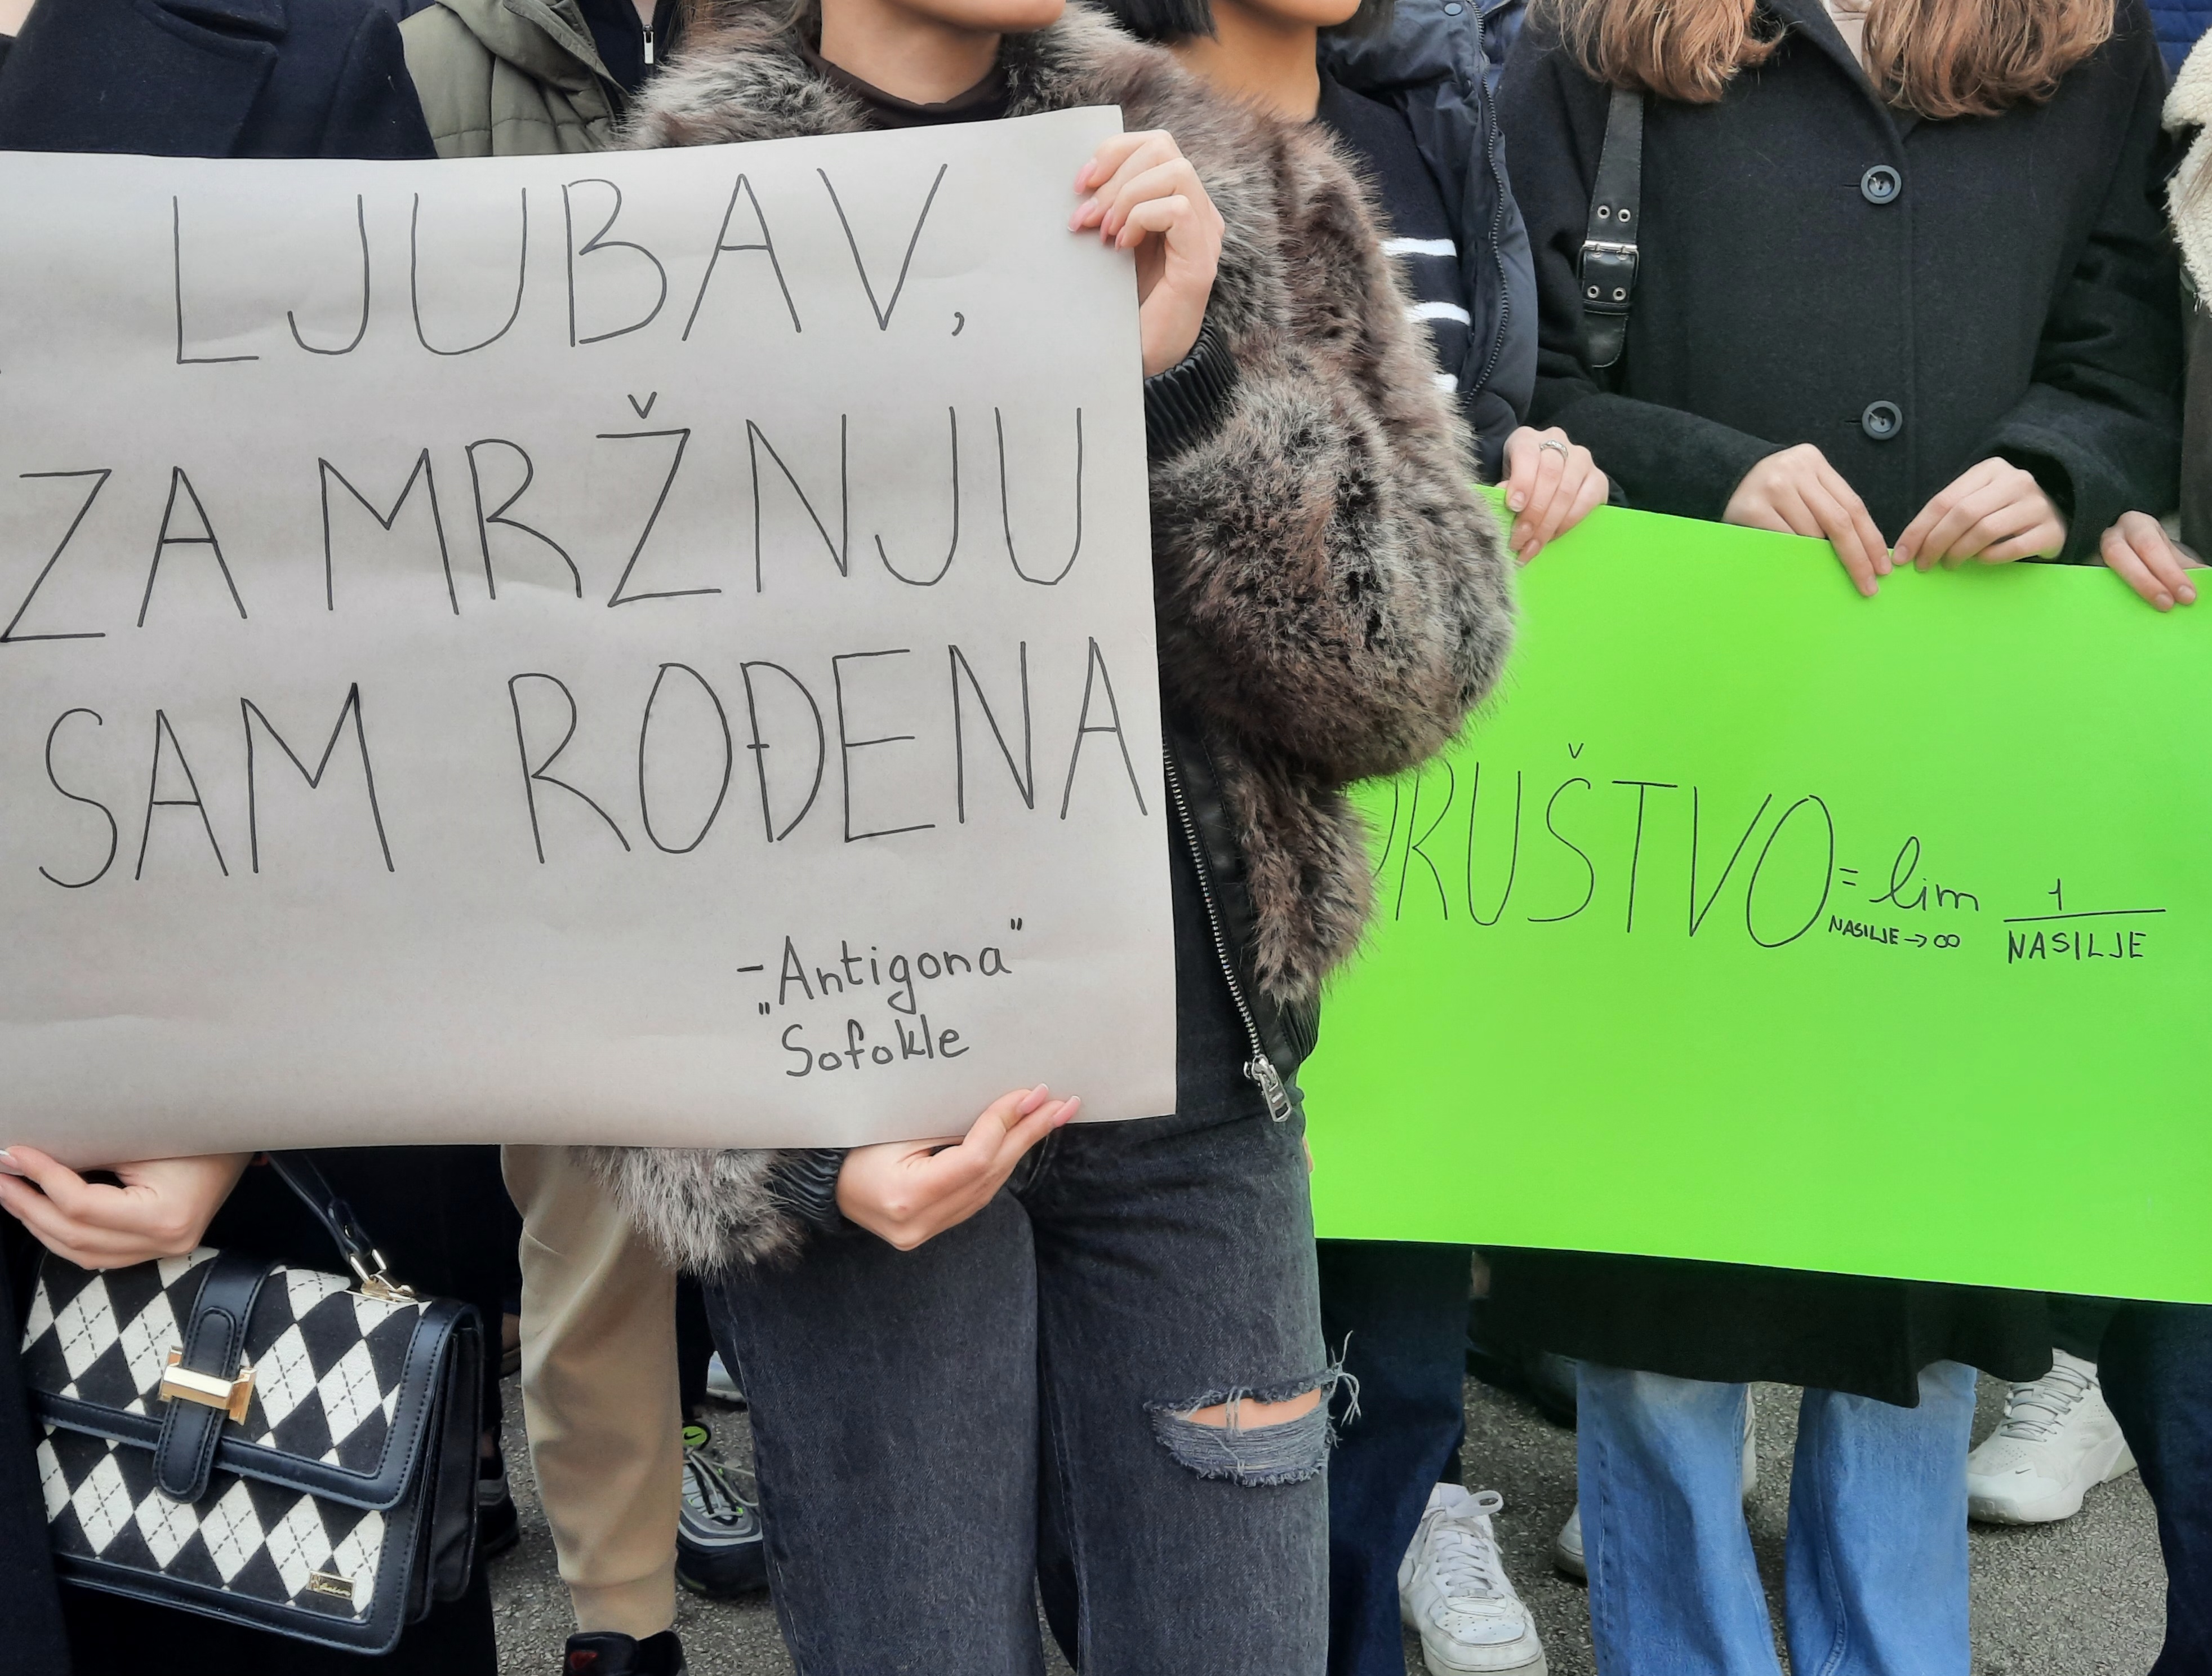 LJUBAV,
ZA MRŽNJU
SAM ROĐENA
- „Antigona"
Sofokle
DRUŠTVO = lim 1
NASILJE → ∞ NASILJE